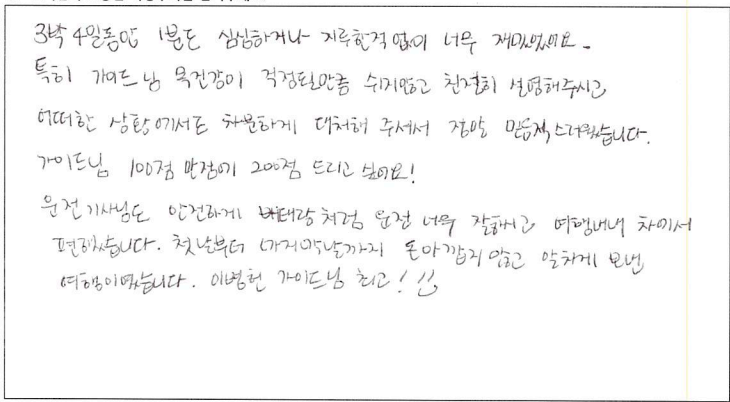 3박 4일동안 1분도 심심하거나 지루한적 없이 너무 재미있었어요.
특히 가이드님 목건강이 걱정될만큼 쉬지않고 친절히 설명해주시고
어떠한 상황에서도 차분하게 대처해 주셔서 정말 믿음직스러웠습니다.
가이드님 100점 만점에 200점 드리고 싶어요!
운전기사님도 안전하게 베테랑처럼 운전 너무 잘하시고 여행내내 차에서
편했습니다. 첫날부터 마지막날까지 돈아깝지 않고 알차게 보낸
여행이었습니다. 이병헌 가이드님 최고!